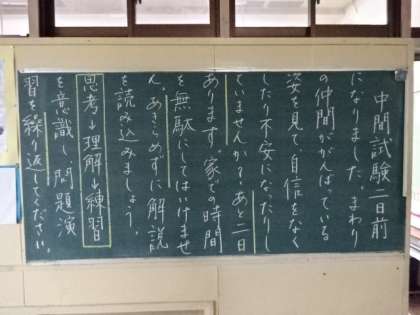 中間試験二日前
になりました。まわり
の仲間ががんばっている
姿を見て、自信をなく
したり不安になったりし
ていませんか？あと二日
あります。家での時間
を無駄にしてはいけませ
ん。あきらめずに解説
を読み込みましょう。
思考→理解→練習
を意識し、問題演
習を繰り返してください。